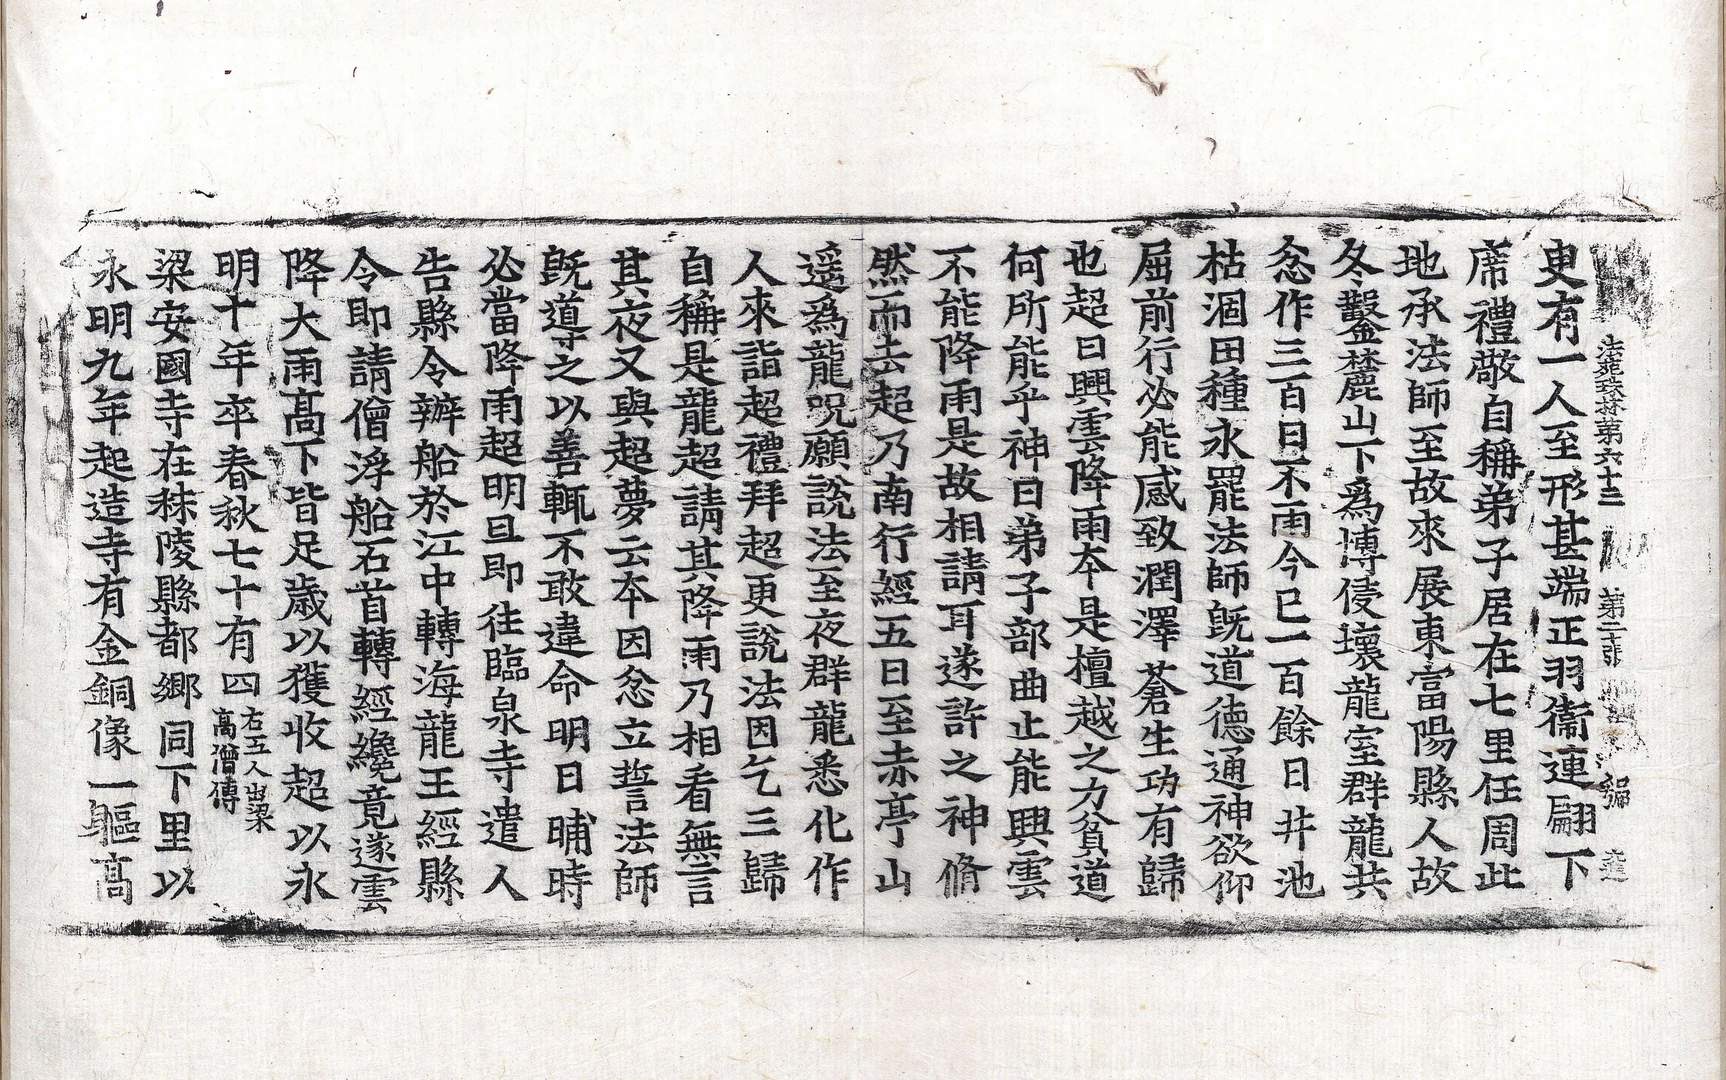 法苑珠林第六十三 第二張 
更有一人至形甚端正羽衞連翩下
席禮敬自稱弟子居在七里任周此
地承法師至故來展東當陽縣人故
冬鑿麓山下爲塼侵壞龍室群龍共
忿作三百日不雨今已一百餘日井池
枯涸田種永罷法師旣道德通神欲仰
屈前行必能感致潤澤蒼生功有歸
也超曰興雲降雨本是檀越之力貧道
何所能乎神曰弟子部曲止能興雲
不能降雨是故相請耳遂許之神倏
然而去超乃南行經五日至赤亭山
遥爲龍呪願說法至夜群龍悉化作
人來詣超禮拜超更說法因乞三歸
自稱是龍超請其降雨乃相看無言
其夜又與超夢云本因忿立誓法師
旣導之以善輒不敢違命明日晡時
必當降雨超明旦即往臨泉寺遣人
告縣令辦船於江中轉海龍王經縣
令即請僧浮船石首轉經纔竟遂雲
降大雨高下皆足歲以獲收超以永
明十年卒春秋七十有四 右五人出梁高僧傳
梁安國寺在秣陵縣都鄉同下里以
永明九年起造寺有金銅像一軀高